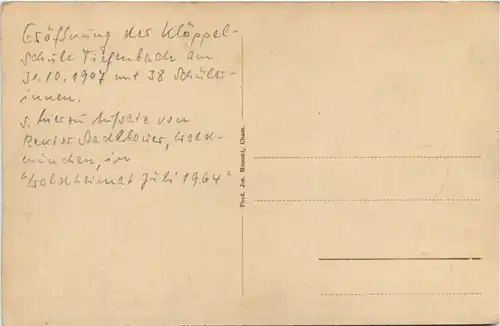 Eröffnung der Klöppel-
schule Tiefenbach am
31.10.1907 mit 38 Schüler-
innen.
s. hierzu Aufsatz von
Rektor Stadlbauer, Wald-
münchen, in
"Waldheimat Juli 1964"
Phot. Jos. Minonti, Cham.